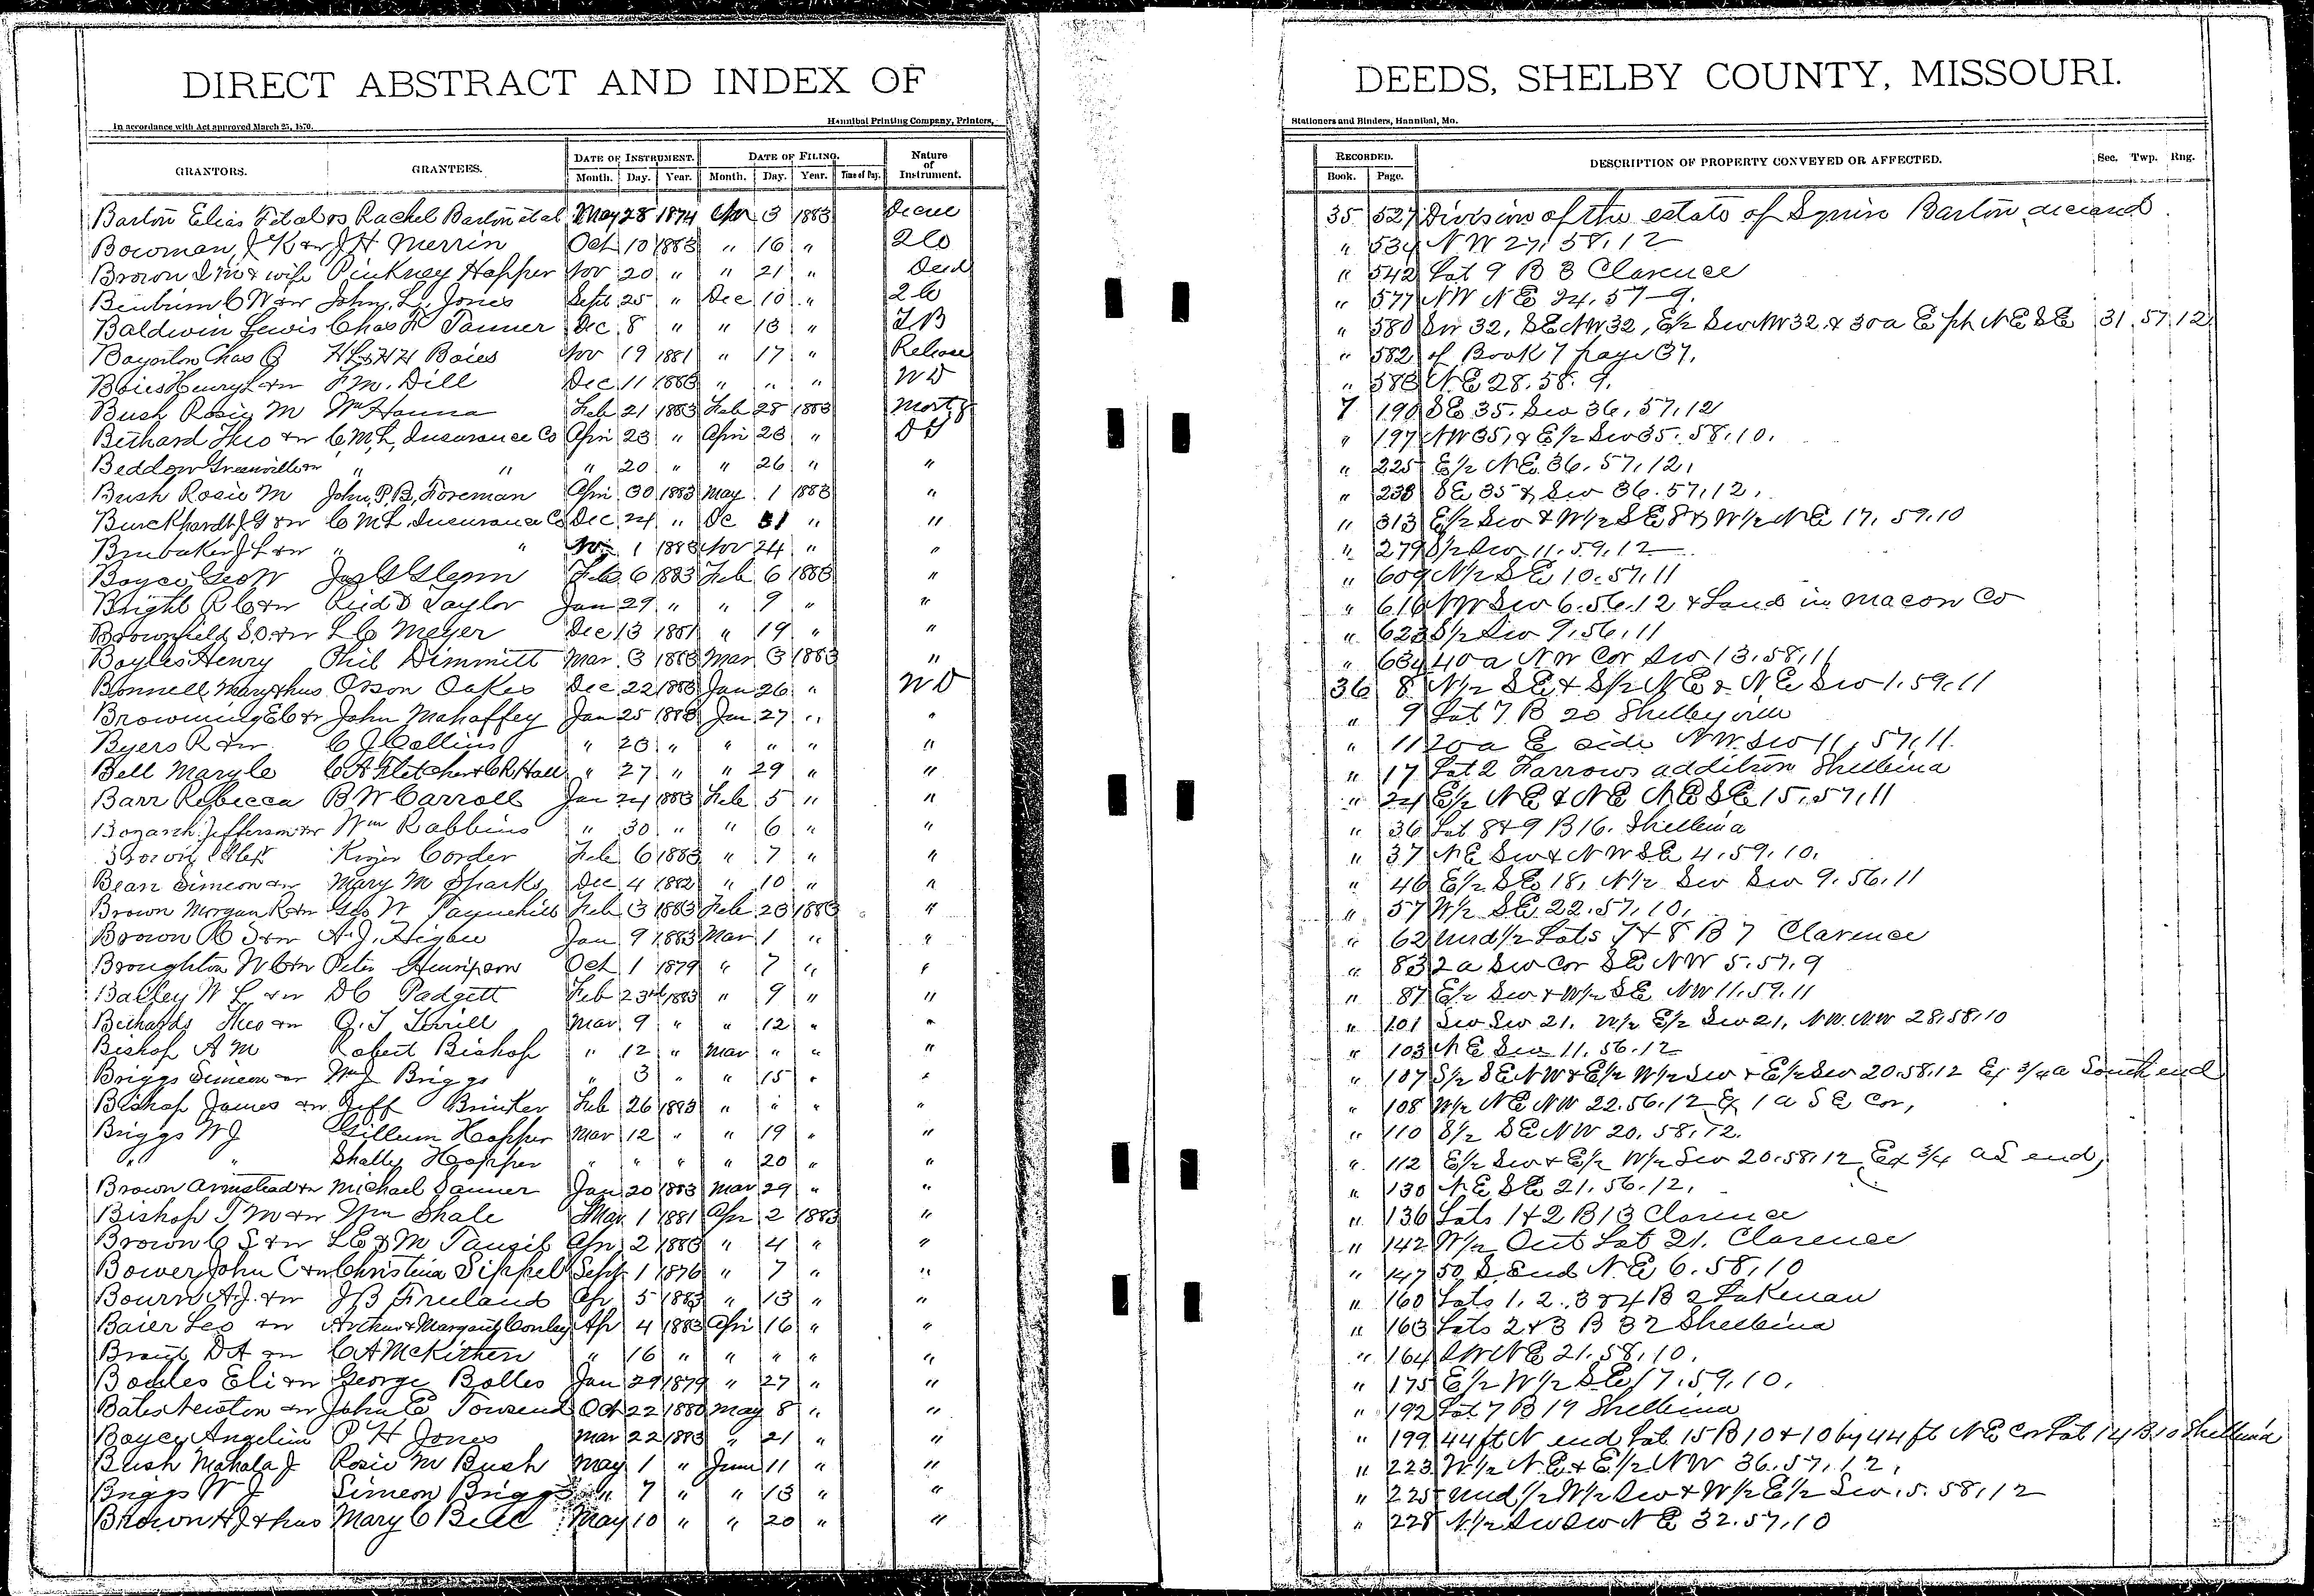 DIRECT ABSTRACT AND INDEX OF DEEDS, SHELBY COUNTY, MISSOURI.
In accordance with Act approved March 25, 1870. Hannibal Printing Company, Printers, Stationers and Binders, Hannibal, Mo.
GRANTORS. GRANTEES. DATE OF INSTRUMENT. Month. Day. Year. DATE OF FILING. Month. Day. Year. Time of Day. Nature of Instrument. RECORDED. Book. Page. DESCRIPTION OF PROPERTY CONVEYED OR AFFECTED. Sec. Twp. Rng.
Barton Elias et al vs Rachel Barton et al May 28 1874 Nov 3 1883 Decree 35 527 Division of the estate of Squire Barton deceased
Bowman, J K & w J H Merrin Oct 10 1883 " 16 " 534 NW 27, 58, 12
Brown & wife Pinkney Hopper Nov 20 " " 21 " Deed " 542 Lot 9 B 3 Clarence
C W & w John L. Jones Sept 25 " Dec 10 " " 577 NW NE 24, 57-9.
Baldwin Lewis Chas Tanner Dec 8 " " 13 " " 580 Sw 32, SE NW 32, E/2 Sw NW 32, & 30a E pt NE SE 31, 57, 12
Chas H L & H H Boies Nov 19 1881 " 17 " Release " 582 of Book 7 page 37.
Boies Henry L & w F M. Dill Dec 11 1883 " " " WD " 583 NE 28. 58. 9.
Bush Rosie M Wm Hanna Feb 21 1883 Feb 28 1883 Mortg 7 190 SE 35. Sw 36, 57, 12
Bethard Theo & w C M L Insurance Co Apri 23 " Apri 23 " " 197 NW 35, & E/2 Sw 35. 58, 10.
Beddow Greenville & w " " " 20 " " 26 " " " 225 E/2 NE 36. 57, 12,
Bush Rosie M John P. B. Foreman Apri 30 1883 May 1 1883 " " 238 SE 35 & Sw 36. 57, 12,
Burckhardt J G & w C M L Insurance Co Dec 24 " De 31 " " " 313 E/2 Sw & W/2 SE 8 & W/2 NE 17, 59, 10
Brubaker J L & w " " Nov 1 1883 Nov 24 " " " 279 S/2 Sw 11. 59, 12
Boyce Geo W Jas G Glenn Feb 6 1883 Feb 6 1883 " " 609 N/2 SE 10. 57. 11
Bright R C & w Reid D Taylor Jan 29 " " 9 " " " 616 NW Sw 6. 56. 12 & Land in Macon Co
Brownfield S. O & w L C Meyer Dec 13 1881 " 19 " " " 623 S/2 Sw 9, 56, 11
Boyles Henry Phil Dimmitt Mar 3 1883 Mar 3 1883 " " 634 40a NW Cor Sw 13, 58, 11
Bonnell Mary & hus Orson Oakes Dec 22 1883 Jan 26 " WD 36 8 N/2 SE & S/2 NE & NE Sw 1. 59. 11
Browning E C & w John Mahaffey Jan 25 1883 Jan 27 " " " 9 Lot 7 B 20 Shelbyville
Byers R & w C J Collins " 23 " " " " " " 11 20a E side NW Sw 11, 57, 11.
Bell Mary C A Fletcher & C R Hall " 27 " " 29 " " " 17 Lot 2 Farrows addition Shelbina
Barr Rebecca B W Carroll Jan 24 1883 Feb 5 " " " 24 E/2 NE & NE NE SE 15, 57, 11
Jefferson & w Wm Robbins " 30 " " 6 " " " 36 Lot 8 & 9 B 16. Shelbina
Brown Alex Corder Feb 6 1883 " 7 " " " 37 NE Sw & NW SE 4, 59, 10.
Bean Simeon & w Mary M Sparks Dec 4 1882 " 10 " " " 46 E/2 SE 18, N/2 Sw Sw 9, 56, 11
Brown Morgan R & w Geo W Feb 3 1883 Feb 23 1883 " " 57 W/2 SE 22. 57, 10,
Brown S & w A. J. Jan 9 1883 Mar 1 " " " 62 und 1/2 Lots 7 & 8 B 7 Clarence
Broughton W C & w Peter Oct 1 1879 " 7 " " " 83 2a Sw Cor SE NW 5. 57, 9
Bailey W L & w D C Padgett Feb 23rd 1883 " 9 " " " 87 E/2 Sw & W/2 SE NW 11. 59. 11
Bethards Theo & w O. T Terrill Mar 9 " " 12 " " " 101 Sw Sw 21, W/2 E/2 Sw 21, NW. NW 28, 58, 10
Bishop A M Robert Bishop " 12 " Mar " " " " 103 NE Sw 11. 56. 12
Briggs Simeon & w Wm J Briggs " 3 " " 15 " " " 107 S/2 SE NW & E/2 W/2 Sw & E/2 Sw 20. 58. 12 Ex 3/4 a South end
Bishop James & w Jeff Brinker Feb 26 1883 " " " " " 108 W/2 NE NW 22. 56. 12 Ex 1 a SE Cor,
Briggs W J Gillum Hopper Mar 12 " " 19 " " " 110 S/2 SE NW 20, 58, 12.
" " Hopper " " " " 20 " " " 112 E/2 Sw & E/2 W/2 Sw 20. 58, 12 (Ex 3/4 a S end)
Brown Armstead & w Michael Sanner Jan 20 1883 Mar 29 " " " 130 NE SE 21. 56. 12,
Bishop T M & w Wm Shale Mar 1 1881 Apr 2 1883 " " 136 Lots 1 & 2 B 13 Clarence
Brown C S & w L E & M Apr 2 1883 " 4 " " " 142 W/2 Out Lot 21. Clarence
Bower John C & w Christina Sippel Sept 1 1876 " 7 " " " 147 50 S. End NE 6. 58, 10
Bourn A. J. & w J B Freeland Apr 5 1883 " 13 " " " 160 Lots 1, 2, 3 & 4 B 2 Lakenan
Baier Leo & w Arthur & Margaret Conley Apr 4 1883 Apri 16 " " " 163 Lots 2 & 3 B 32 Shelbina
D A & w C A McKithen " 16 " " " " " " 164 SW NE 21. 58, 10.
Eli & w George Bolles Jan 29 1879 " 27 " " " 175 E/2 W/2 SE 17. 59, 10.
Bates Newton & w John E Townsend Oct 22 1880 May 8 " " " 192 Lot 7 B 19 Shelbina
Angeline P H Jones Mar 22 1883 " 21 " " " 199 44 ft N end Lot 15 B 10 & 10 by 44 ft NE Cor Lot 14 B 10 Shelbina
Bush Mahala J Rosie M Bush May 1 " June 11 " " " 223 W/2 NE & E/2 NW 36. 57, 12,
Briggs W J Simeon Briggs " 7 " " 13 " " " 225 und 1/2 W/2 Sw & W/2 E/2 Sw. 5. 58, 12
Brown H J & hus Mary C May 10 " " 20 " " " 228 N/2 Sw Sw NE 32. 57, 10